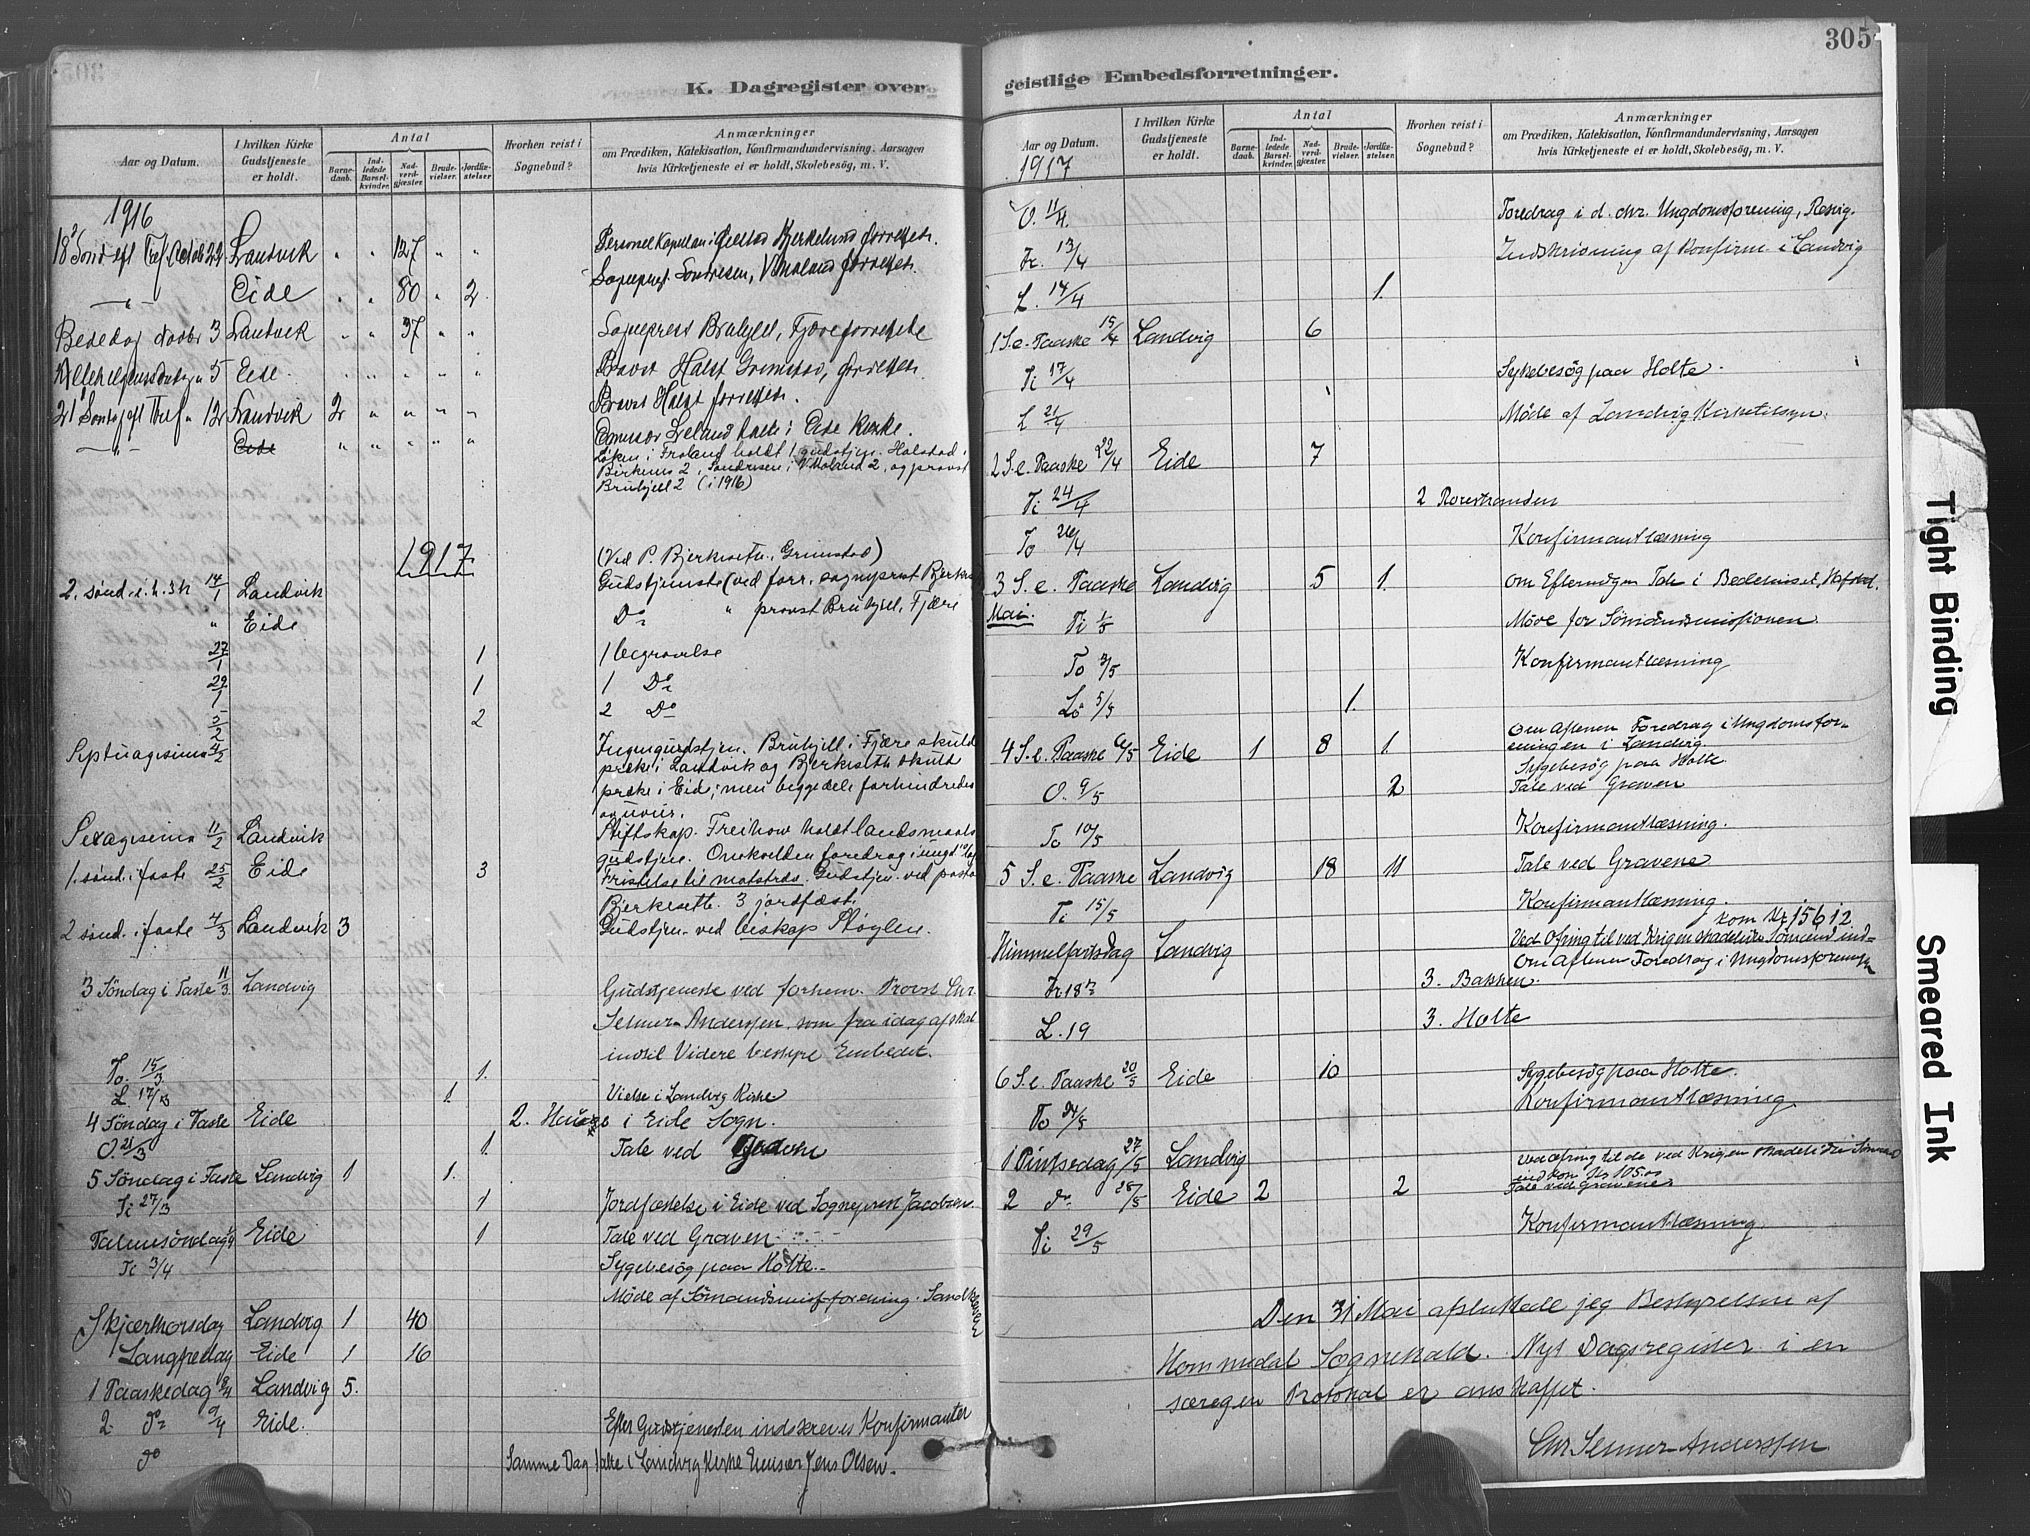 K. Dagregister over
Aar og Datum.
I hvilken Kirke Gudstjeneste er holdt.
Antal
Barnedaab.
Indledede Barselkvinder.
Nadverdgjæster.
Brudevielser.
Jordfæstelser
Hvorhen reist i Sognebud?
Anmærkninger
om Prædiken, Katekisation, Konfirmandundervisning, Aarsagen
hvis Kirketjeneste ei er holdt, Skolebesøg, m. V.
1916
Landvik " " 127 " "
Eide " " 80 " 2 Sognepr. Sondresen, V. Moland forrettet.
Bededag Novbr 3 Landvik " " 37 " " Sogneprest Bruhjell, Fjære forrettede
5 Eide " " " " " Provst Halst Grimstad, forrettet.
12 Landvik 2 " " " " Provst Halst forrettet.
Eide " " " " " Emissær Lreland talte i Eide Kirke.
Løken i Froland holdt 1 gudstjen. Holstad i
Birkenes 2, Sondresen i V. Moland 2, og provst
Bruhjell 2 (i 1916)
1917
(Ved P. Bjerkeseth, Grimstad)
2. sønd. i. h. 3 k 14/1 Landvik Gudstjeneste (ved forr. sogneprest Bjerkes
" Eide Do " provst Bruhjell, Fjære
27/1 1 1 begravelse
29/1 1 1 Do
3/2 2 2 Do
Septuagesima 4/2 Ingen gudstjen. Bruhjell i Fjære skuld
preke i Landvik og Bjerkeseth skuld
preke i Eide; men begge dele forhindredes
av uveir.
Sexagesima 11/2 Landvik Stiftskap. Freihow holdt landsmaals
gudstjen. Onskvelden foredrag i ungd.
1. sønd. i faste 25/2 Eide 3 Fristelse til motstrøs. Gudstjen. ved pastor
Bjerkeseth. 3 jordfæst.
2 sønd. i faste 4/3 Landvik 3 Gudstjen. ved biskop Støylen.
3 Söndag i Faste 11/3 Landvig Gudstjeneste ved forhen. Provst Chr.
Selmer-Anderssen, som fra idag af skal
indtil Videre bestyre Embedet.
To. 15/3 1.
L. 17/3 1. Vielse i Landvig Kirke
4 Söndag i Faste Eide 2. i Eide Sogn.
O. 21/3 1. Tale ved Graven
5 Söndag i Faste Landvig 1 1.
Ti 27/3 1 Jordfæstelse i Eide ved Sogneprest Jacobsen.
Palmesöndag 1/4 Eide 1 Tale ved Graven
Ti 3/4 Sygebesøg paa Holte.
Møde af Sömandsmis.forening.
Skjærthorsdag Landvig 1 40
Langfredag Eide 1 16
1 Paaskedag 8/4 Landvig 5.
2 Do 9/4 Eide. Efter Gudstjenesten indskreves Konfirmanter
Do Samme Dag talte i Landvig Kirke Emisær Jens Olsen.
geistlige Embedsforretninger.
305
Aar og Datum.
I hvilken Kirke Gudstjeneste er holdt.
Antal
Barnedaab.
Indledede Barselkvinder.
Nadverdgjæster.
Brudevielser.
Jordfæstelser
Hvorhen reist i Sognebud?
Anmærkninger
om Prædiken, Katekisation, Konfirmandundervisning, Aarsagen
hvis Kirketjeneste ei er holdt, Skolebesøg, m. V.
1917
O. 11/4 Foredrag i d. chr. Ungdomsforening,
Fr. 13/4 Indskrivning af Konfirm. i Landvig
L. 14/4 1.
1 S. e. Paaske 15/4 Landvig 6
Ti 17/4 Sykebesög paa Holte.
L 21/4 Møde af Landvig Kirketilsyn.
2 S. e. Paaske 22/4 Eide 7
Ti 24/4 2 Rorestranden
To 26/4 Konfirmantlæsning
3 S. e. Paaske Landvig 5 1. Om Eftermidgen Tale i Bedehuset,
Mai. Ti 1/5 Møde for Sömandsmissionen.
To 3/5 Konfirmantlæsning
Lö 5/5 1.
4 S. e. Paaske 6/5 Eide 1 8 1 Om Aftenen Foredrag i Ungdomsfor-
eningen i Landvig.
Sygebesög paa Holte
O. 9/5 2 Tale ved Graven
To 10/5 Konfirmantlæsning.
5 S. e. Paaske Landvig 18 11 Tale ved Gravene
Ti 15/5 Konfirmantlæsning.
kom Kr 156 12
Himmelfartsdag Landvig Ved Ofring til ved Krigen skadelidte Sömænd ind-
Om Aftenen Foredrag i Ungdomsforening
Fr 18 3. Bakken
L. 19 3. Holte
6 S. e. Paaske 20/5 Eide 10 Sygebesög paa Holte.
To 24/5 Konfirmantlæsning
1 Pintsedag 27/5 Landvig Ved Ofring til de ved Krigen skadelidte Sömænd
ind kom Kr 105.00
2 Do 28/5 Eide 2 2 Tale ved gravene
Ti 29/5 Konfirmantlæsning
Den 31 Mai afsluttede jeg Bestyrelsen af
Hommedal Sognekald. Nyt Dagsregister i en
særegen Protokol er anskaffet.
Chr Selmer-Anderssen
Tight Binding
Smeared Ink